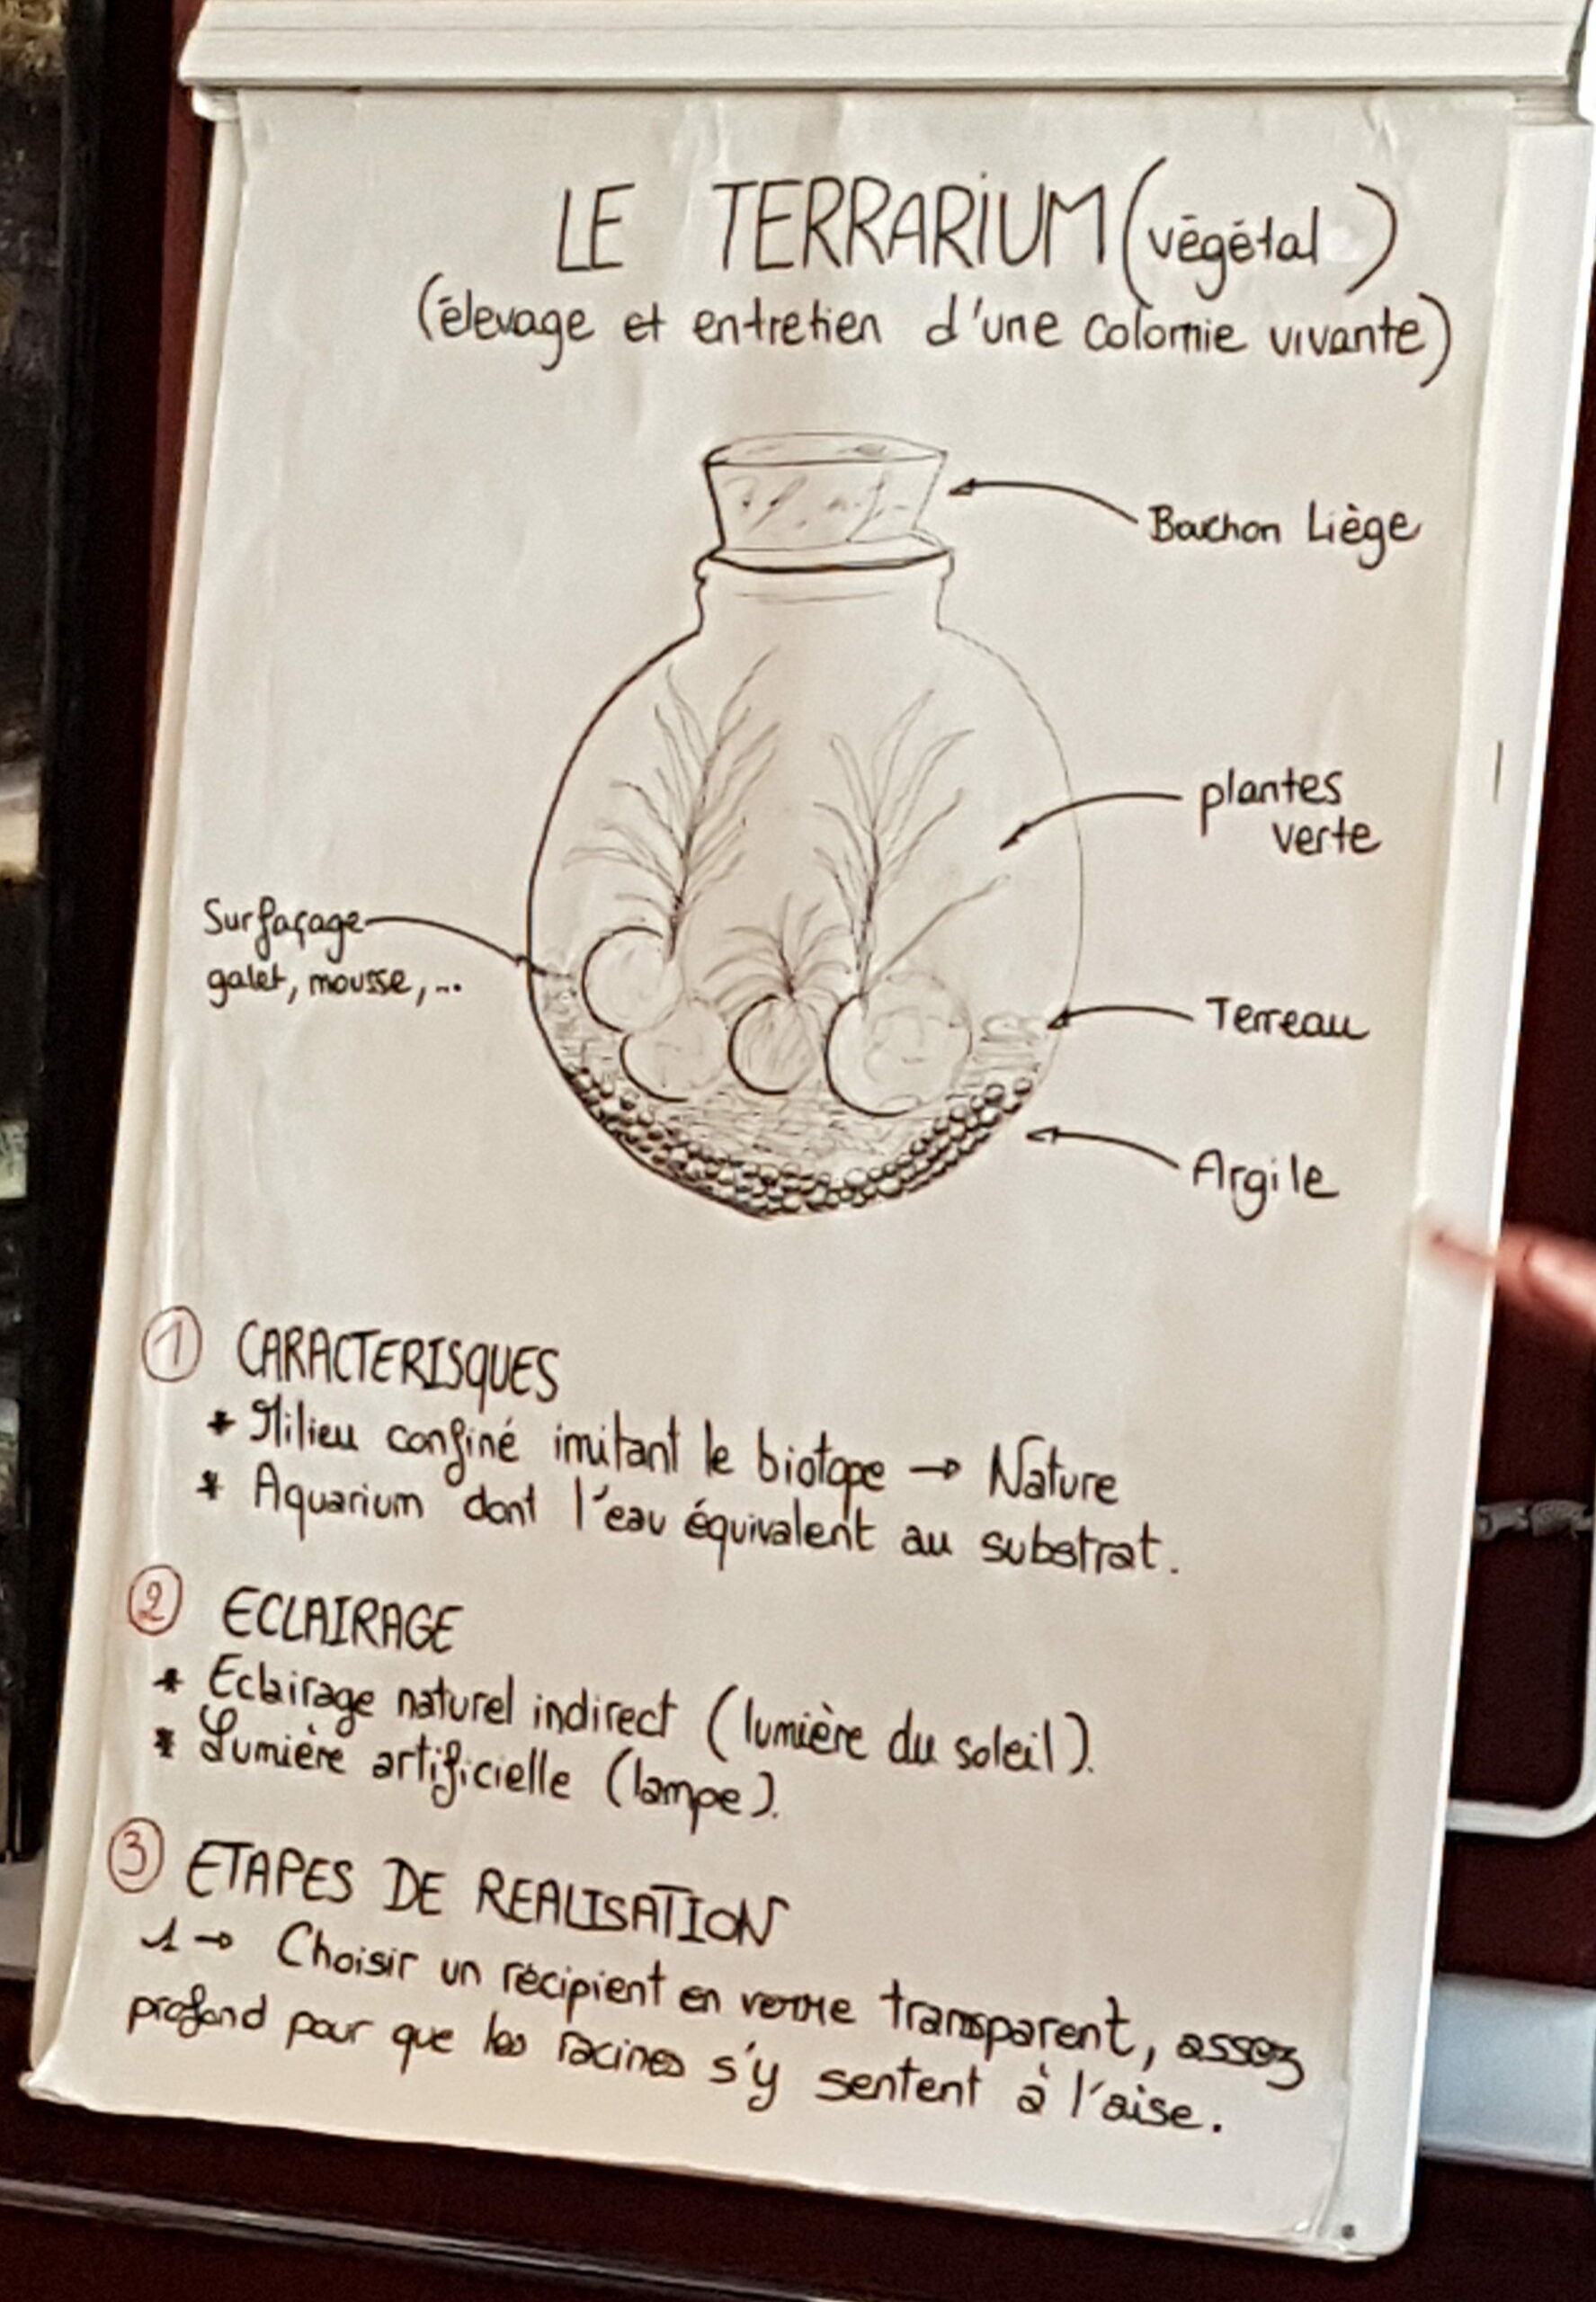 LE TERRARIUM (végétal)
(élevage et entretien d'une colonie vivante)
Bouchon Liège
plantes
verte
Surfaçage
galet, mousse, ...
Terreau
Argile
1 CARACTERISQUES
* Milieu confiné imitant le biotope → Nature
* Aquarium dont l'eau équivalent au substrat.
2 ECLAIRAGE
* Eclairage naturel indirect (lumière du soleil).
* Lumière artificielle (lampe).
3 ETAPES DE REALISATION
1 → Choisir un récipient en verre transparent, assez
profond pour que les racines s'y sentent à l'aise.